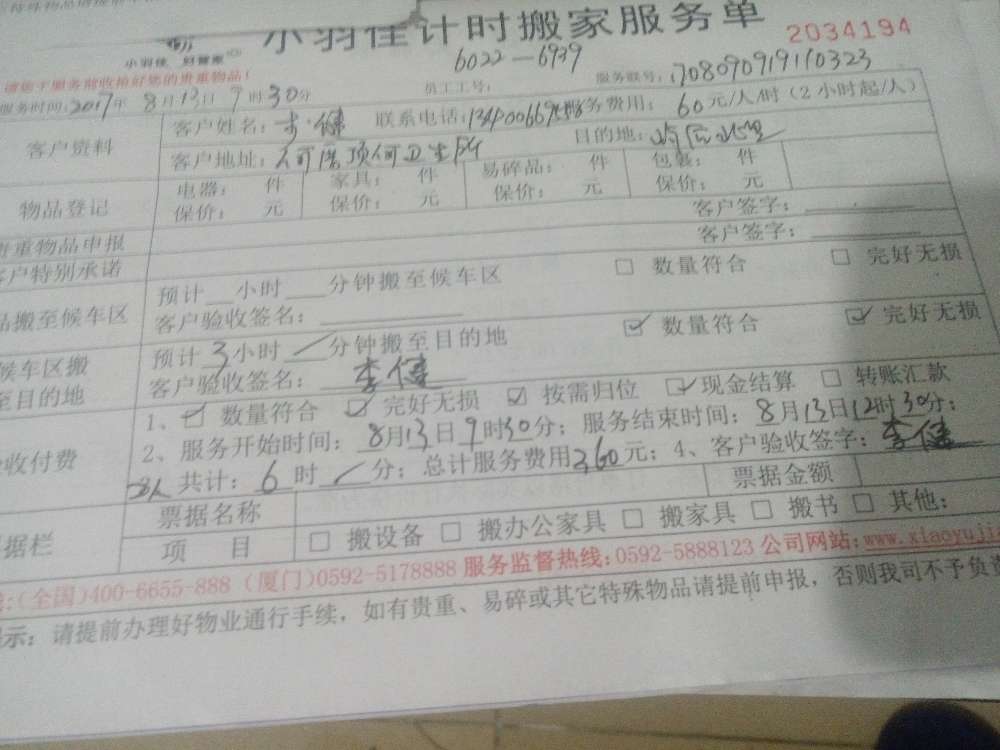 特殊物品请提前
小羽佳计时搬家服务单
小羽佳 好管家
2034194
6022-6939
请您于服务前收拾好您的贵重物品!
员工工号:
服务联号: 170809091910323
服务时间: 2017年 8月13日 9时30分
客户资料
客户姓名: 李健 联系电话: 服务费用: 60元/人/时 (2小时起/人)
客户地址: 何厝顶何卫生所 目的地:
物品登记
电器: 件 家具: 件 易碎品: 件 包裹: 件
保价: 元 保价: 元 保价: 元 保价: 元
贵重物品申报 客户签字:
客户特别承诺 客户签字:
品搬至候车区
预计__小时___分钟搬至候车区 □ 数量符合 □ 完好无损
客户验收签名:
候车区搬至目的地
预计3小时/分钟搬至目的地 ☑ 数量符合 ☑ 完好无损
客户验收签名: 李健
收付费
1、☑ 数量符合 ☑ 完好无损 ☑ 按需归位 ☑ 现金结算 □ 转账汇款
2、服务开始时间: 8月13日9时30分; 服务结束时间: 8月13日12时30分;
2人 共计: 6时/分; 总计服务费用360元; 4、客户验收签字: 李健
据栏
票据名称 票据金额
项 目 □ 搬设备 □ 搬办公家具 □ 搬家具 □ 搬书 □ 其他:
(全国)400-6655-888 (厦门)0592-5178888 服务监督热线:0592-5888123 公司网站: www.xiaoyuji
示: 请提前办理好物业通行手续, 如有贵重、易碎或其它特殊物品请提前申报, 否则我司不予负责